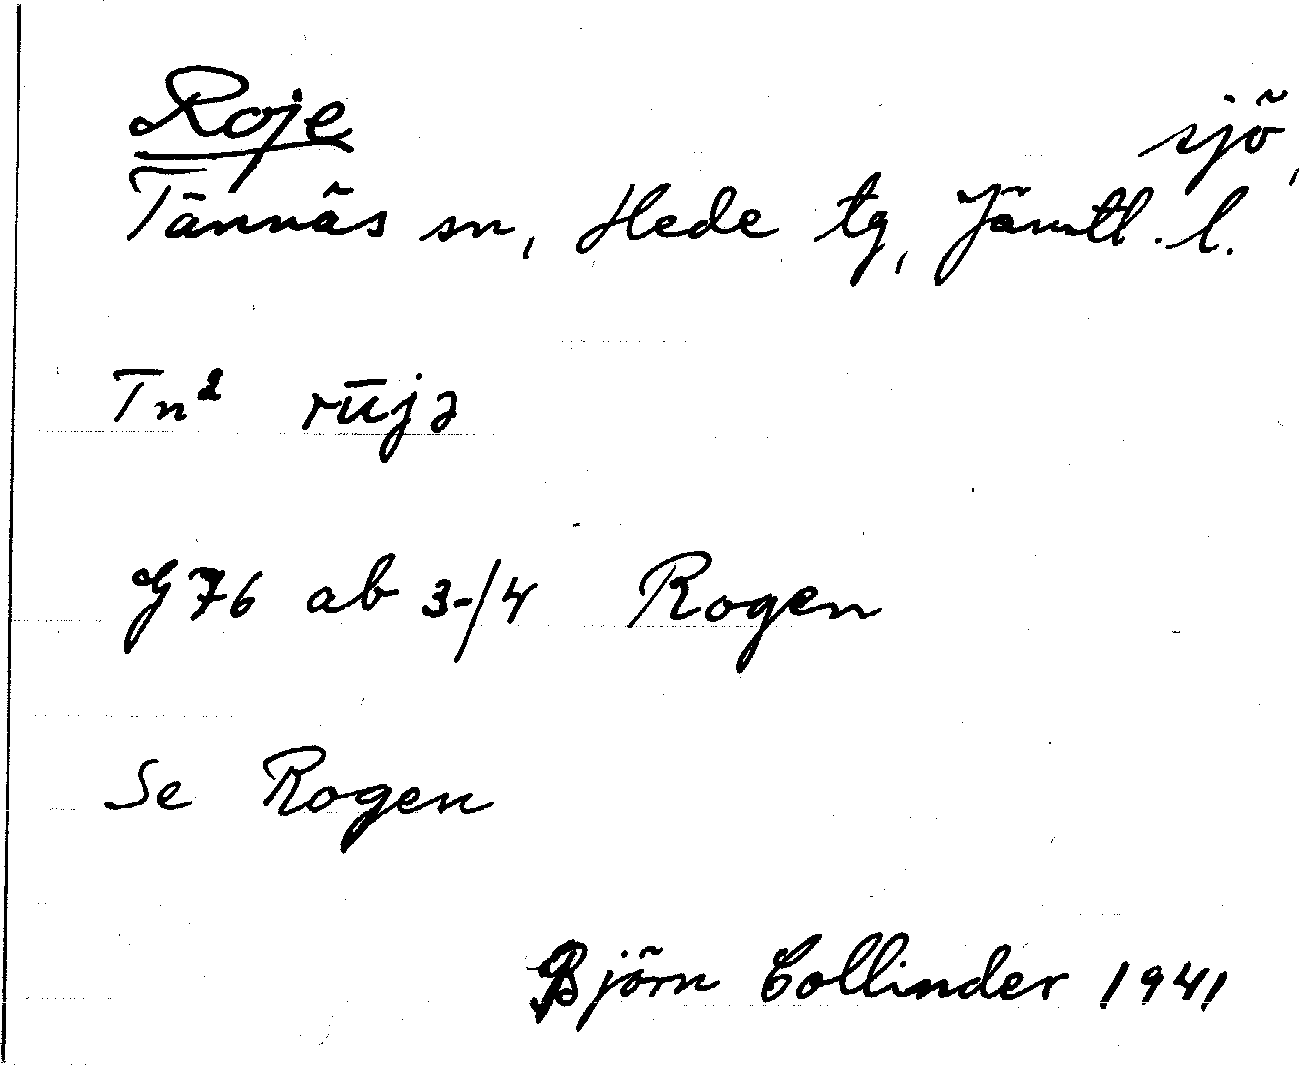 Roje sjö,
Tännäs sn, Hede tg, Jämtl. l.
Tn² rūjə
G 76 ab 3-/4 Rogen
Se Rogen
Björn Collinder 1941